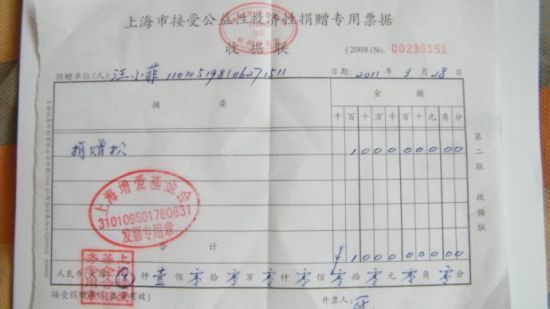 上海市接受公益性救济性捐赠专用票据
收据联
(2008) No. 00235151
捐赠单位(人):汪小菲 110105198106271511 日期:2011年3月28日
摘要 金额
千百十万千百十元角分
捐赠款 100000000
上海增爱基金会
310109501780631
发票专用章
合计 ¥100000000
人民币(大写)⊗仟壹佰零拾零万零仟零佰零拾零元零角零分
接受捐赠单位(盖章有效) 开票人:
第二联 收据联